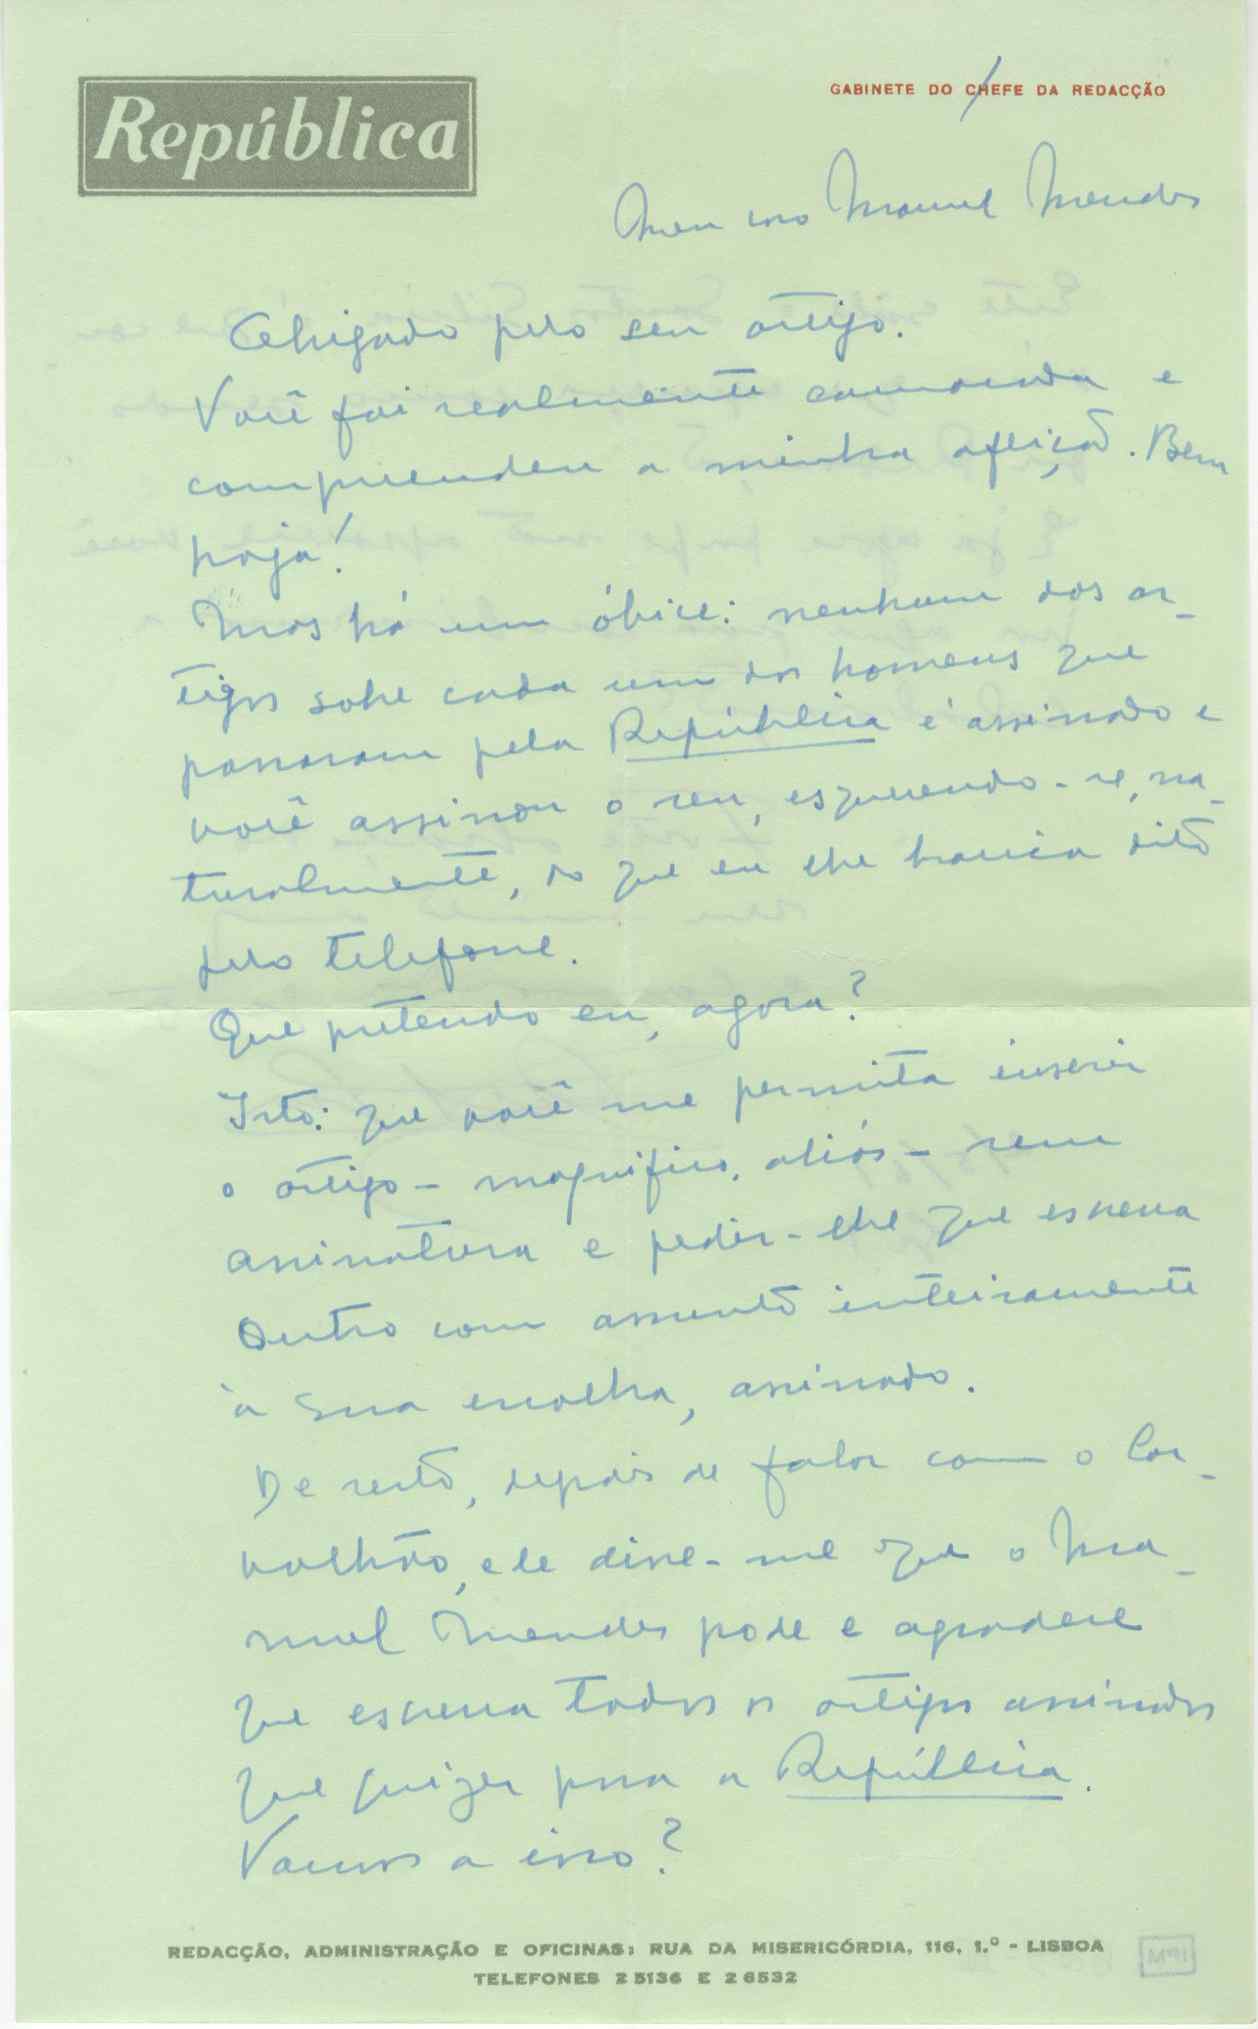 República
GABINETE DO CHEFE DA REDACÇÃO
Meu caro Manuel Mendes
Obrigado pelo seu artigo.
Você foi realmente camarada e
compreendeu a minha aflição. Bem
haja!
Mas há um óbice: nenhum dos ar-
tigos sobre cada um dos homens que
passaram pela República é assinado e
você assinou o seu, esquecendo-se, na-
turalmente, do que eu lhe havia dito
pelo telefone.
Que pretendo eu, agora?
Isto: que você me permita inserir
o artigo - magnífico, aliás - sem
assinatura e pedir-lhe que escreva
outro com assunto inteiramente
à sua escolha, assinado.
De resto, depois de falar com o Car-
valhão, ele disse-me que o Ma-
nuel Mendes pode e agradece
que escreva todos os artigos assinados
que quizer para a República.
Vamos a isso?
REDACÇÃO, ADMINISTRAÇÃO E OFICINAS: RUA DA MISERICÓRDIA, 116, 1.º - LISBOA
TELEFONES 25136 E 26532